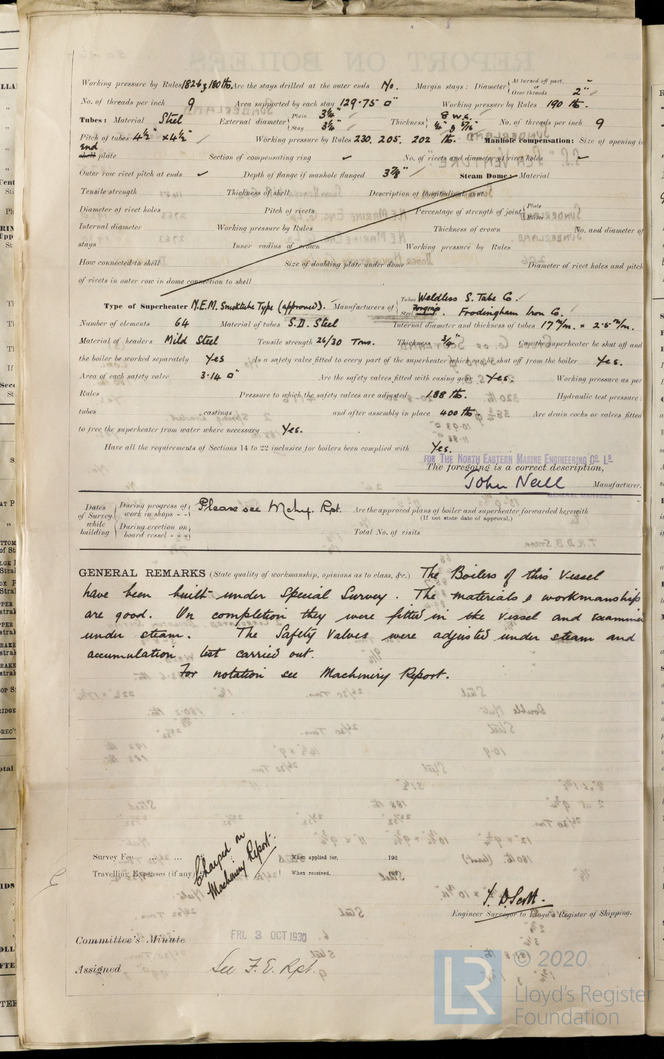 Working pressure by Rules 182 & 180 lb. Are the stays drilled at the outer ends No. Margin stays: Diameter { At turned off part, or Over threads 2"
No. of threads per inch 9 Area supported by each stay 129.75 □" Working pressure by Rules 190 lb.
Tubes: Material Steel External diameter { Plain 3¼" Stay 3¼" Thickness { 8 W.G. No. of threads per inch 9
Pitch of tubes 4½" x 4½" Working pressure by Rules 230, 205, 202 lb. Manhole compensation: Size of opening in
end shell plate Section of compensating ring ✓ No. of rivets and diameter of rivet holes ✓
Outer row rivet pitch at ends ✓ Depth of flange if manhole flanged 3¾" Steam Dome: Material
Tensile strength Thickness of shell Description of longitudinal joint
Diameter of rivet holes Pitch of rivets Percentage of strength of joint { Plate Rivets
Internal diameter Working pressure by Rules Thickness of crown No. and diameter of
stays Inner radius of crown Working pressure by Rules
How connected to shell Size of doubling plate under dome Diameter of rivet holes and pitch
of rivets in outer row in dome connection to shell
Type of Superheater N.E.M. Smoketube Type (approved). Manufacturers of { Tubes Weldless S. Tube Co. Steel Forgings Frodingham Iron Co.
Number of elements 64 Material of tubes S.D. Steel Internal diameter and thickness of tubes 17 m/m. x 2.5 m/m.
Material of headers Mild Steel Tensile strength 26/30 Tons. Thickness Can the superheater be shut off and
the boiler be worked separately Yes Is a safety valve fitted to every part of the superheater which can be shut off from the boiler Yes.
Area of each safety valve 3.14 □" Are the safety valves fitted with easing gear Yes. Working pressure as per
Rules Pressure to which the safety valves are adjusted 188 lb. Hydraulic test pressure:
tubes castings and after assembly in place 400 lb. Are drain cocks or valves fitted
to free the superheater from water where necessary Yes.
Have all the requirements of Sections 14 to 22 inclusive for boilers been complied with Yes.
FOR THE NORTH EASTERN MARINE ENGINEERING Co. Ld.
The foregoing is a correct description,
John Neill Manufacturer.
Dates of Survey while building { During progress of work in shops - - Please see Mchy. Rpt. Are the approved plans of boiler and superheater forwarded herewith
(If not state date of approval.)
During erection on board vessel - - - Total No. of visits
GENERAL REMARKS (State quality of workmanship, opinions as to class, &c.) The Boilers of this Vessel
have been built under Special Survey. The materials & workmanship
are good. On completion they were fitted in the vessel and examined
under steam. The Safety Valves were adjusted under steam and
accumulation test carried out.
For notation see Machinery Report.
Survey Fee ... ... When applied for, 192
Travelling Expenses (if any) When received,
Charged on
Machinery Report.
Engineer Surveyor to Lloyd's Register of Shipping.
Committee's Minute FRI. 3 OCT 1930
Assigned See F.E. Rpt.
LR
© 2020
Lloyd's Register
Foundation